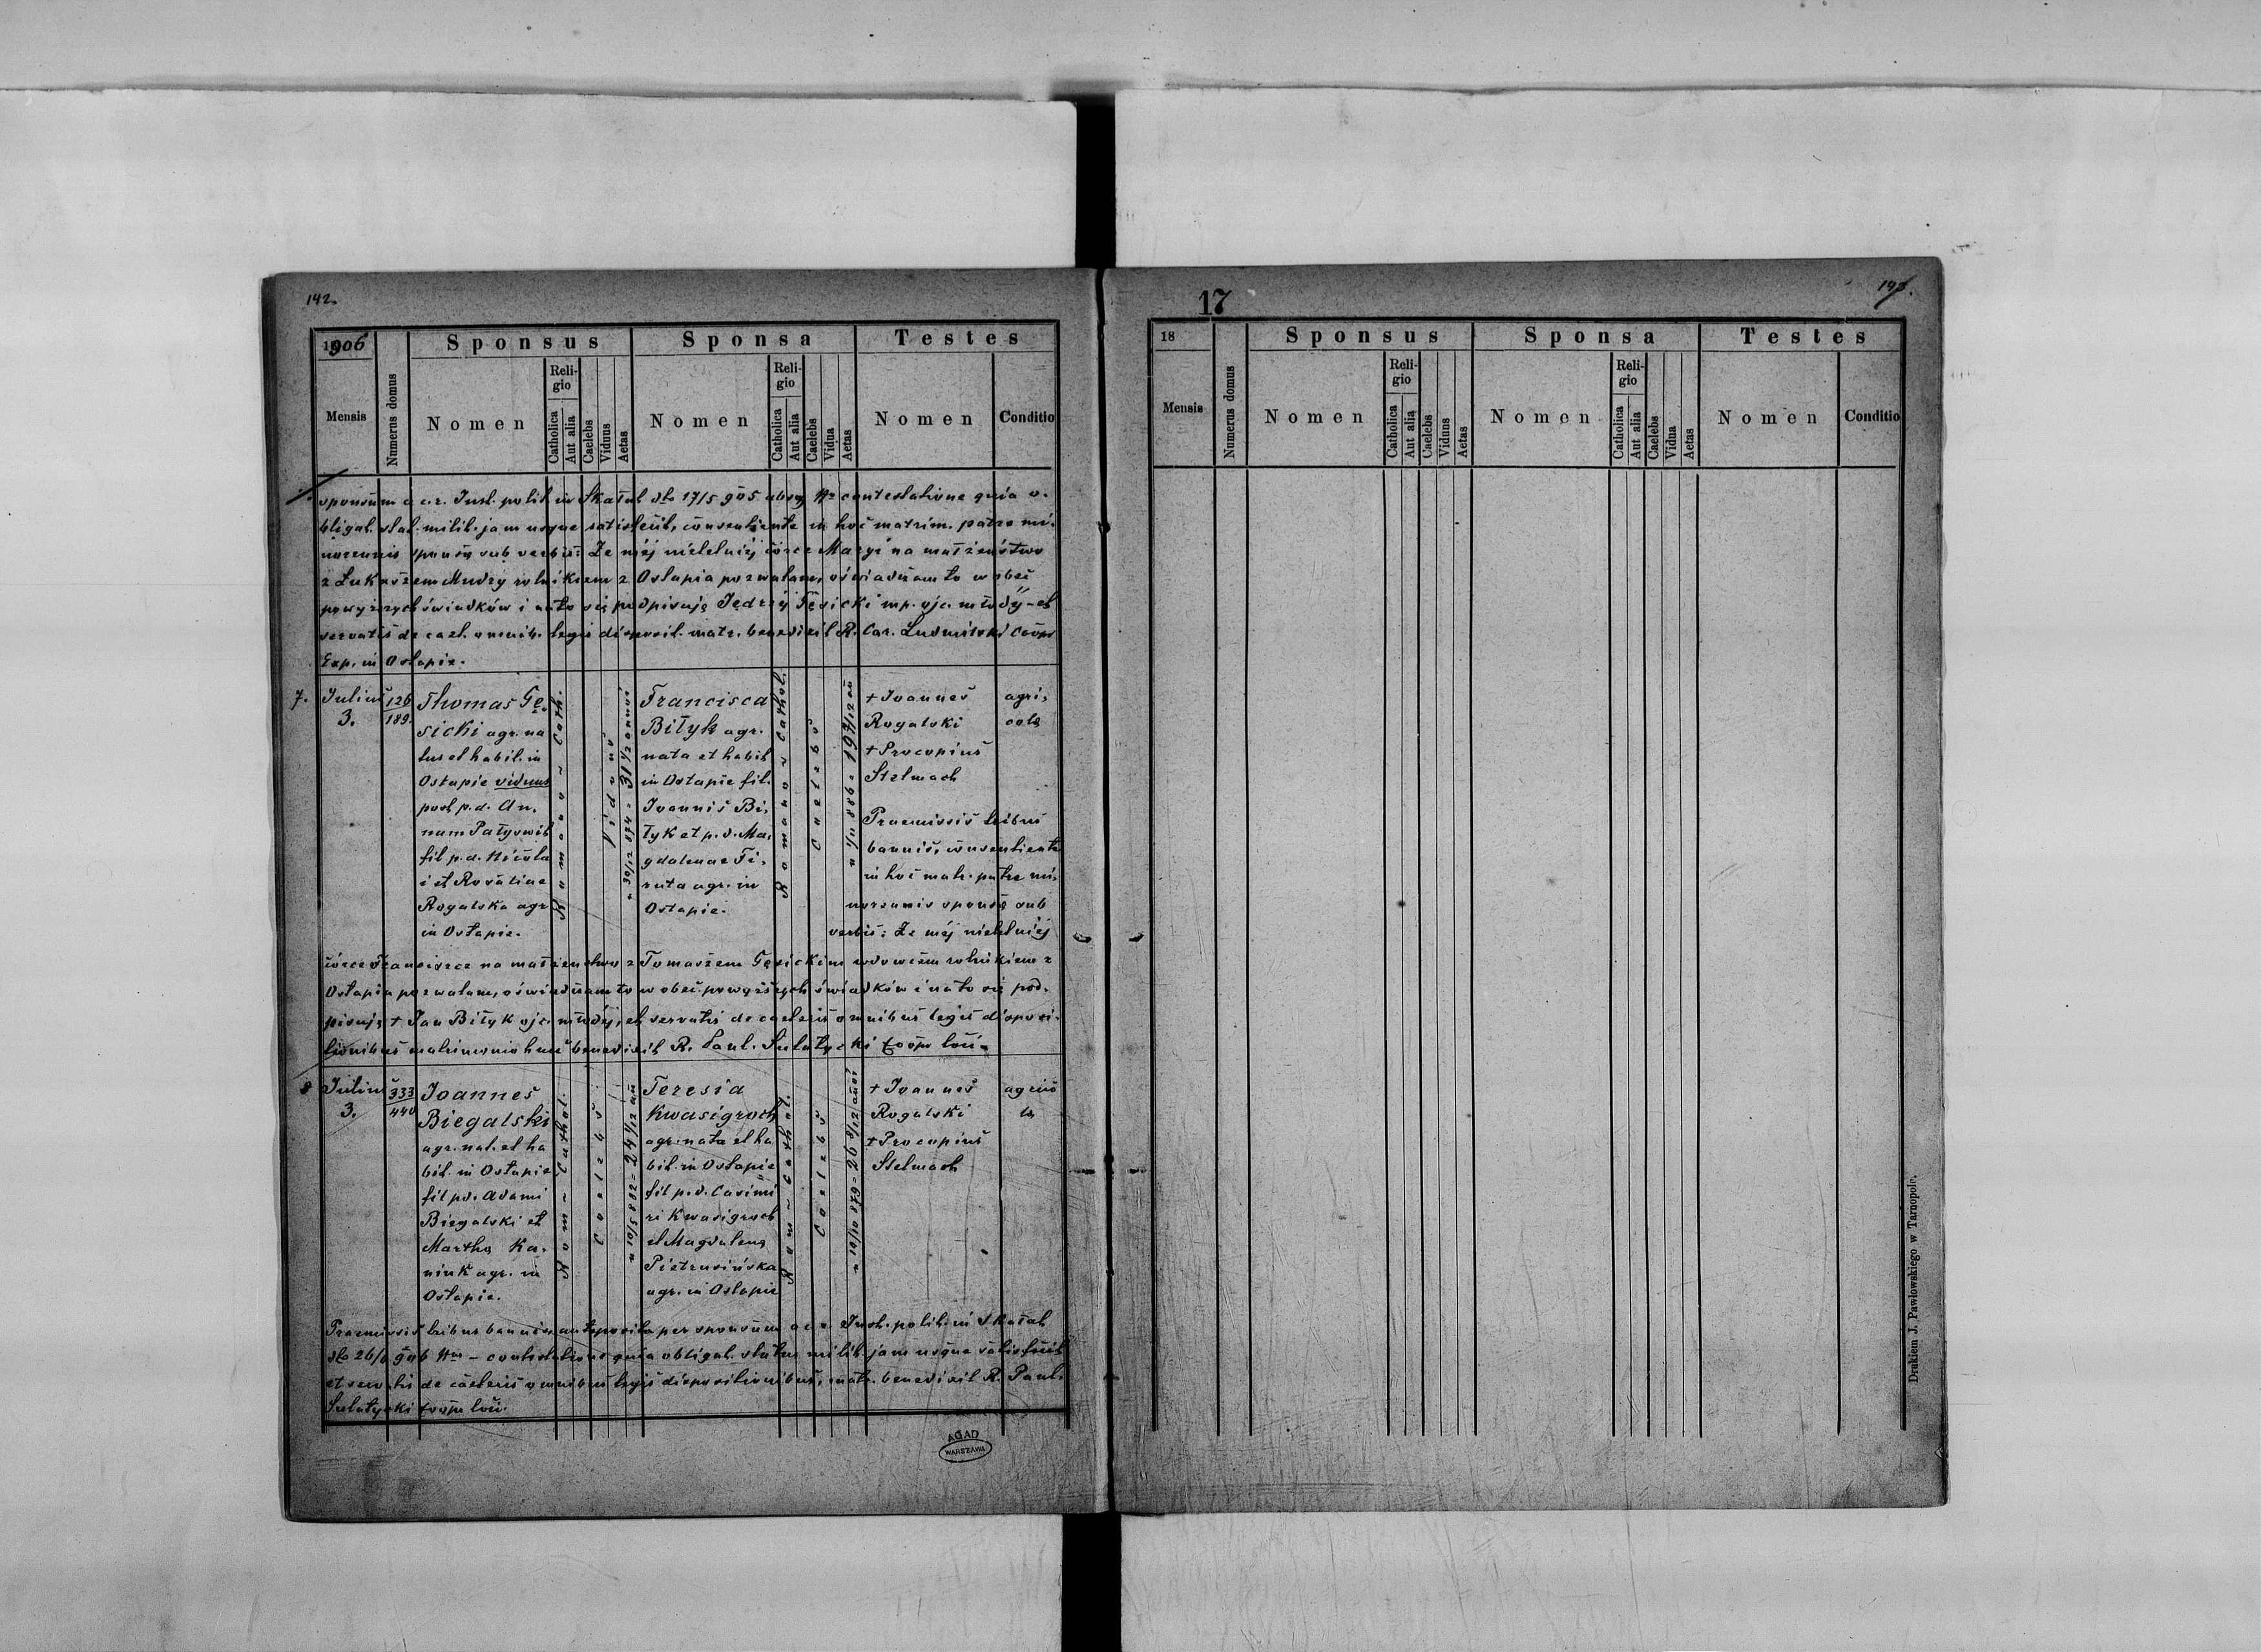 142.
1906
Sponsus
Sponsa
Testes
Mensis
Numerus domus
Nomen
Religio
Catholica
Aut alia
Caelebs
Viduus
Aetas
Nomen
Religio
Catholica
Aut alia
Caelebs
Vidua
Aetas
Nomen
Conditio
sponsum a c. r. Inst. polit. in Skałat dto 17/5 905 absq Nro contestatione quia o-
bligat. stat. milit. jam usque satisfecit, consentiente in hoc matrim. patre mi-
norennis sponsę sub verbis: Że mej nieletniej córce Maryi na małżeństwo
z Łukaszem Mudry rolnikiem z Ostapia pozwalam, oświadczam to wobec
powyższych świadków i na to się podpisuję Jędrzej Gęsicki mp. ojc. młodej - et
servatis de caet. omnib. legis disposit. matr. benedixit R. Car. Ludmilski Coop
Exp. in Ostapie.
7.
Julius
3.
126
189.
Thomas Gę-
sicki agr. na
tus et habit. in
Ostapie viduus
post p. d. An-
nam Patyswit
fil p. d. Nicola
i et Rosaliae
Rogalska agr
in Ostapie.
Romano - Cath.
Viduus
n 30/12 874 = 31 1/2 annor
Francisca
Biłyk agr.
nata et habit
in Ostapie fil.
Joannis Bi-
łyk et p. d. Ma-
gdalenae Fi-
ruta agr. in
Ostapie.
Romano - Cathol.
Caelebs
+ Joannes
Rogalski
+ Procopius
Stelmach
agri-
cola
Praemissis tribus
bannis, consentiente
in hoc matr. patre mi-
norennis sponsę sub
verbis: Że mej nieletniej
córce Franciszce na małżeństwo z Tomaszem Gęsickim wdowcem rolnikiem z
Ostapia pozwalam, oświadczam to wobec powyższych świadków i na to się pod-
pisuję + Jan Biłyk ojc. młodej, et servatis de caeteris omnibus legis disposi-
tionibus matrimonio huic benedixit R. Paul. Sulatycki Coop loci -
8
Julius
3.
333
440
Joannes
Biegalski
agr. nat. et ha
bit. in Ostapie
fil pd. Adami
Biegalski et
Marthę Ka-
niuk agr. in
Ostapie.
Rom - Cathol.
Caelebs
n 10/5 882 = 24 1/12 an
Teresia
Kwasigroch
agr. nata et ha
bit. in Ostapie
fil p. d. Casimi
ri Kwasigroch
et Magdalenę
Pietrusińska
agr. in Ostapie
Rom - Cathol.
Caelebs
+ Joannes
Rogalski
+ Procopius
Stelmach
agrico
la
Praemissis tribus bannis, anteposita per sponsum a c. r. Inst. polit. in Skałat
contestatione quia obligat. status milit. jam usque satisfecit
et servatis de caeteris omnibus legis dispositionibus, matr. benedixit R. Paul.
Sulatycki Coop loci.
AGAD
WARSZAWA
17
18
Sponsus
Sponsa
Testes
Mensis
Numerus domus
Nomen
Religio
Catholica
Aut alia
Caelebs
Viduus
Aetas
Nomen
Religio
Catholica
Aut alia
Caelebs
Vidua
Aetas
Nomen
Conditio
Drukiem J. Pawłowskiego w Tarnopolu.